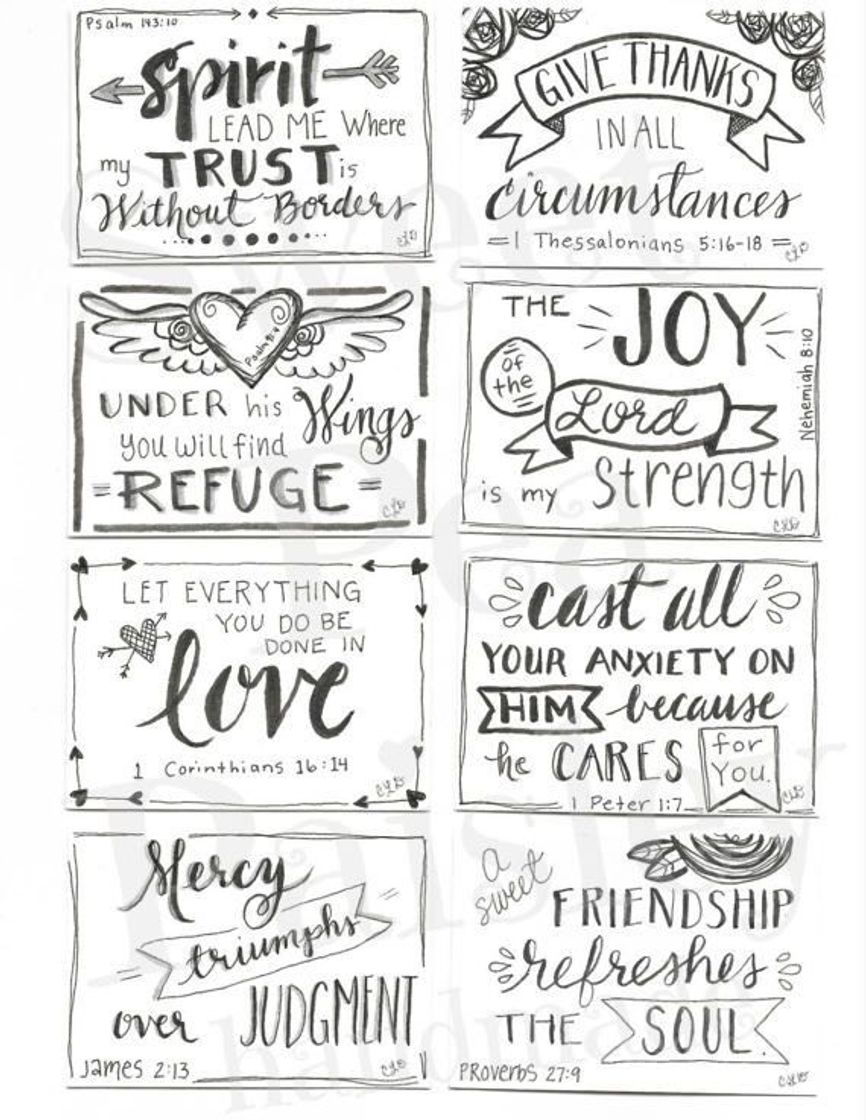 Psalm 143:10
Spirit
LEAD ME Where
my TRUST is
Without Borders
CLD
GIVE THANKS
IN ALL
Circumstances
1 Thessalonians 5:16-18
CLD
Psalm 91:4
UNDER his Wings
you will find
REFUGE
CLD
THE JOY
of the
Lord
is my Strength
Nehemiah 8:10
CLD
LET EVERYTHING
YOU DO BE
DONE IN
love
1 Corinthians 16:14
CLD
cast all
YOUR ANXIETY ON
HIM because
he CARES for You.
1 Peter 1:7
CLD
Mercy
triumphs
over JUDGMENT
James 2:13
CLD
a sweet
FRIENDSHIP
refreshes
THE SOUL.
PROverbs 27:9
CLD
Sweet
Pea
Paisley
handmade